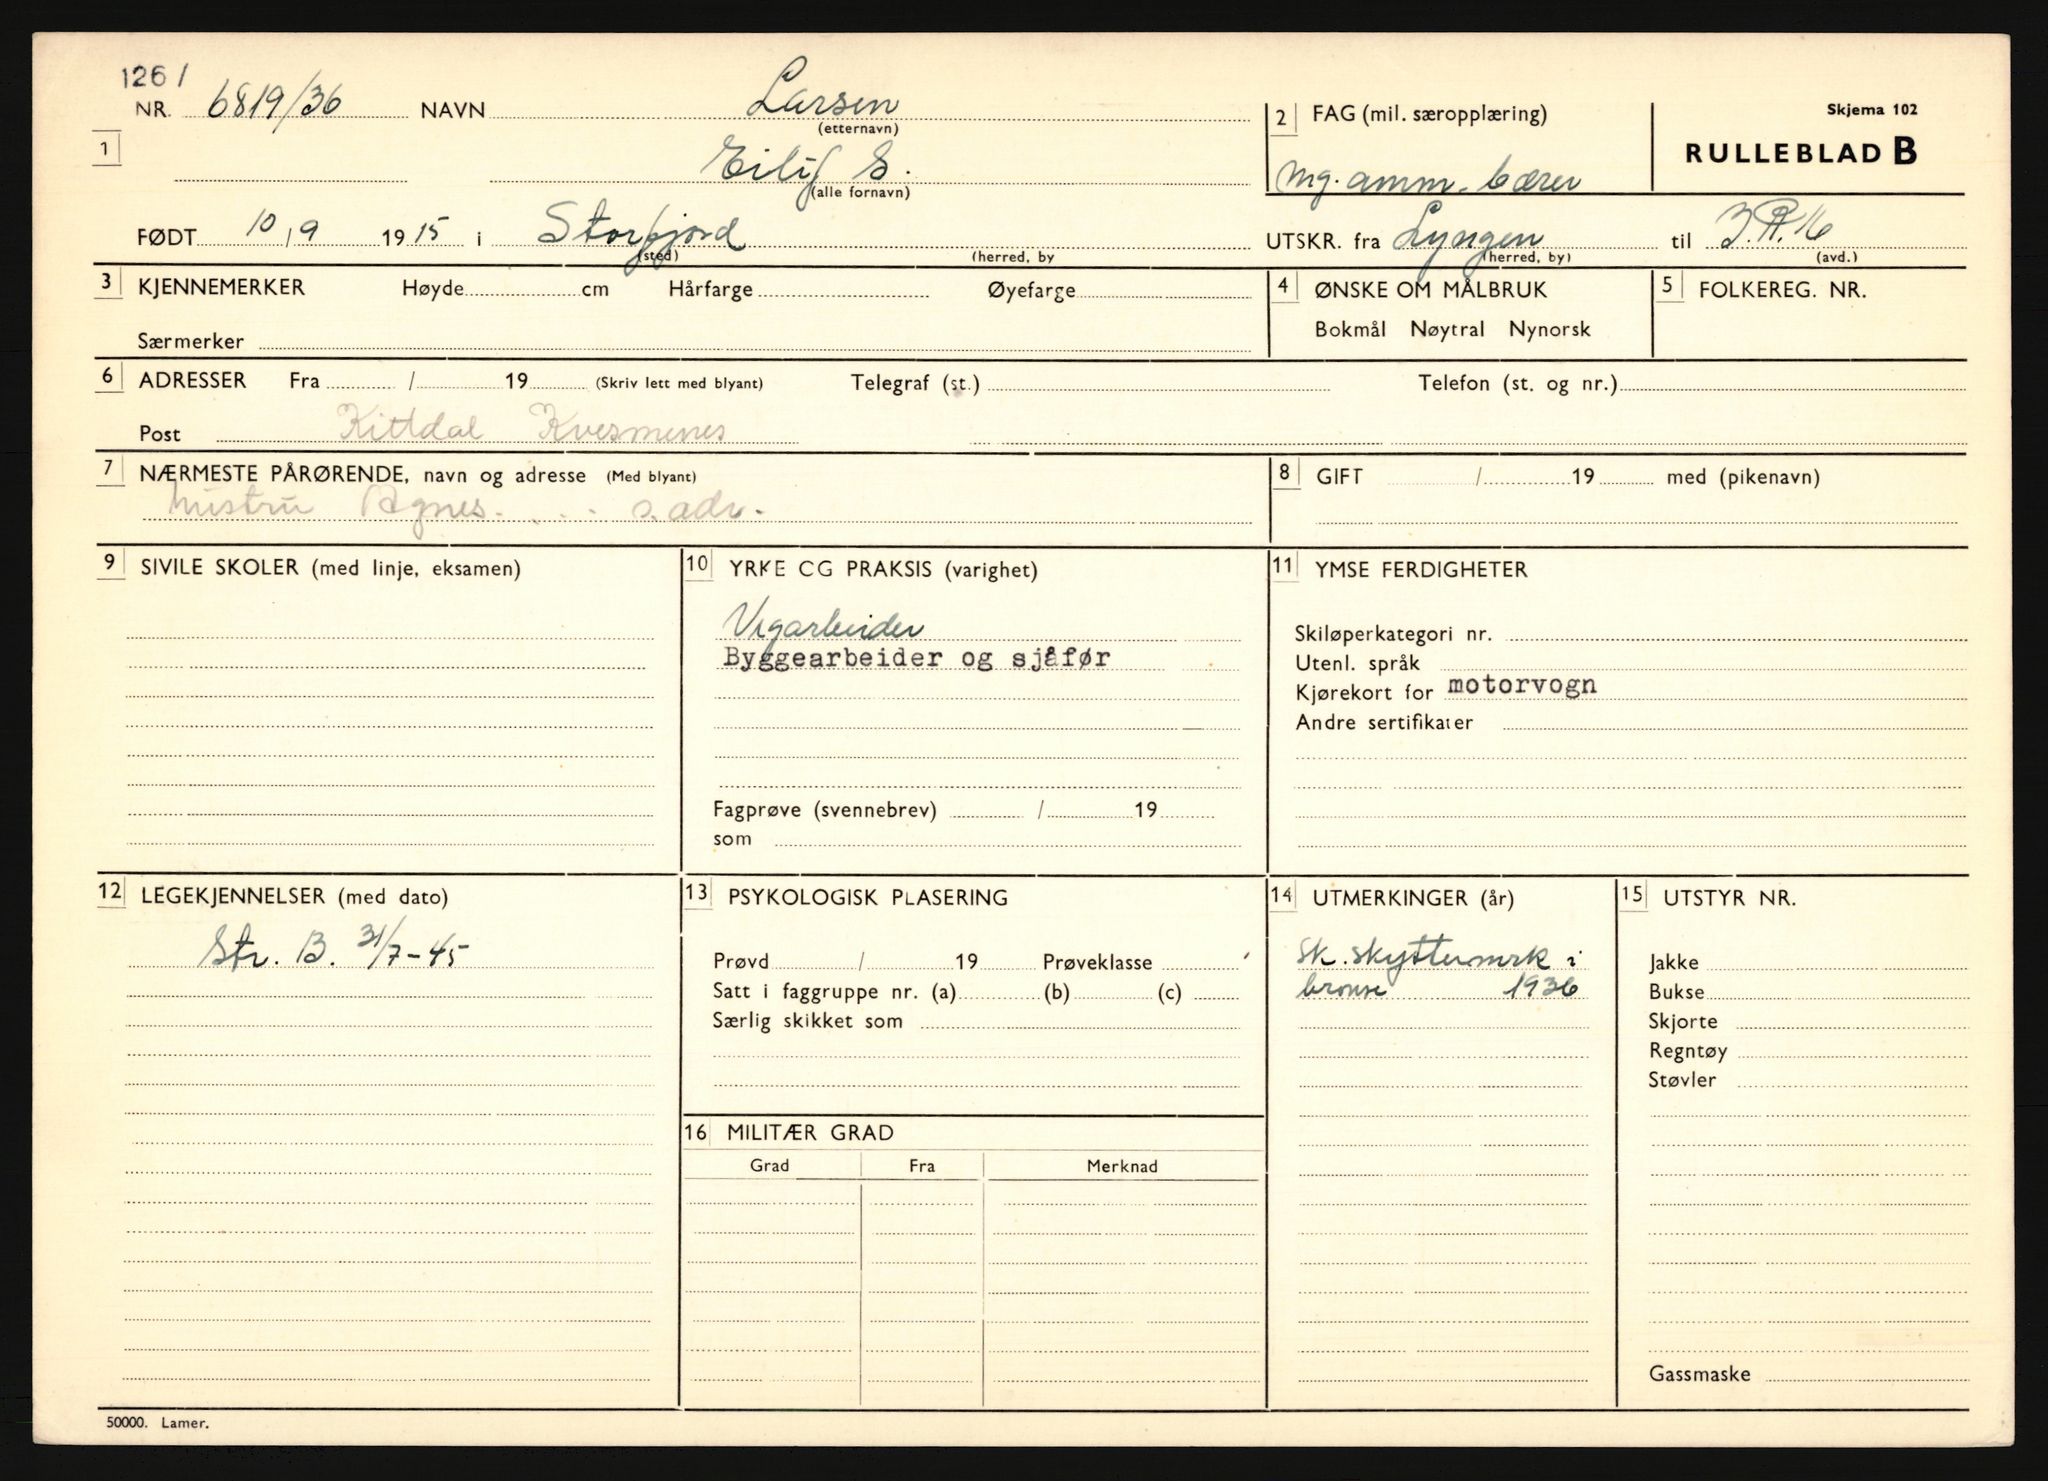 1261
NR. 6819/36 NAVN Larsen
(etternavn)
1 Eilif S.
(alle fornavn)
2 FAG (mil. særopplæring)
mg. amm. bærer
Skjema 102
RULLEBLAD B
FØDT 10/9 1915 i Storfjord
(sted) (herred, by
UTSKR. fra Lyngen til J.R.16
(herred, by) (avd.)
3 KJENNEMERKER Høyde cm Hårfarge Øyefarge
Særmerker
4 ØNSKE OM MÅLBRUK
Bokmål Nøytral Nynorsk
5 FOLKEREG. NR.
6 ADRESSER Fra / 19 (Skriv lett med blyant) Telegraf (st.) Telefon (st. og nr.)
Post Kittdal Kvesmenes
7 NÆRMESTE PÅRØRENDE, navn og adresse (Med blyant)
hustru Agnes . . . s. adr.
8 GIFT / 19 med (pikenavn)
9 SIVILE SKOLER (med linje, eksamen)
10 YRKE CG PRAKSIS (varighet)
Vegarbeider
Byggearbeider og sjåfør
Fagprøve (svennebrev) / 19
som
11 YMSE FERDIGHETER
Skiløperkategori nr.
Utenl. språk
Kjørekort for motorvogn
Andre sertifikater
12 LEGEKJENNELSER (med dato)
Str. B. 31/7-45
13 PSYKOLOGISK PLASERING
Prøvd / 19 Prøveklasse
Satt i faggruppe nr. (a) (b) (c)
Særlig skikket som
14 UTMERKINGER (år)
Sk. skyttermrk i
bronse 1936
15 UTSTYR NR.
Jakke
Bukse
Skjorte
Regntøy
Støvler
Gassmaske
16 MILITÆR GRAD
Grad Fra Merknad
50000. Lamer.